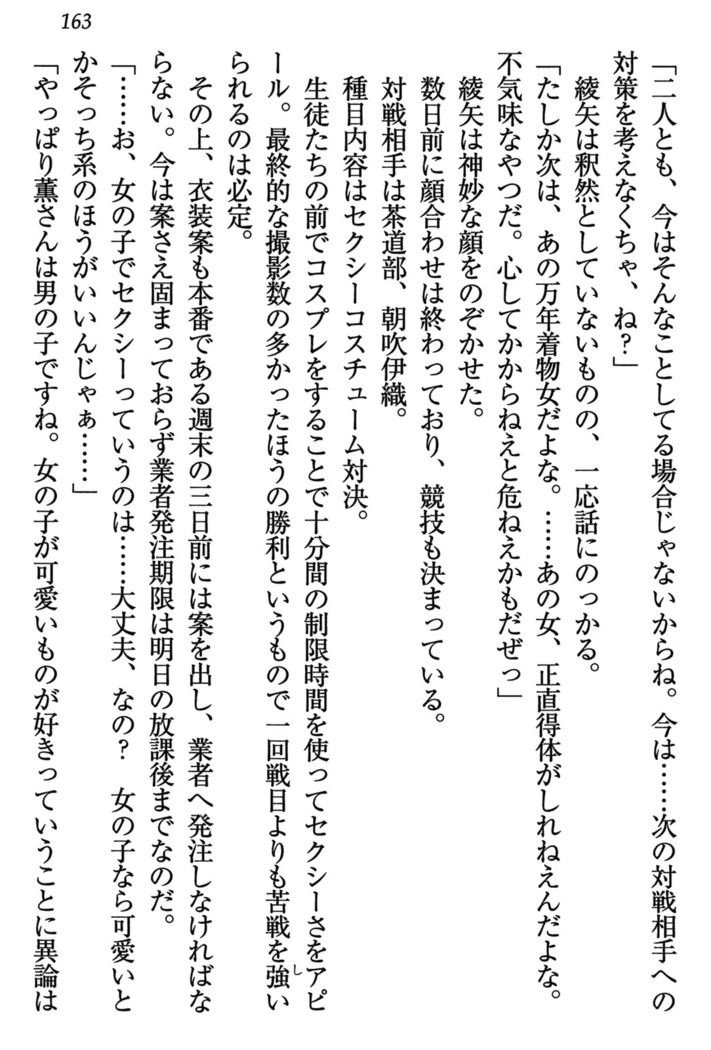 163
「二人とも、今はそんなことしてる場合じゃないからね。今は……次の対戦相手への
対策を考えなくちゃ、ね?」
綾矢は釈然としていないものの、一応話にのっかる。
「たしか次は、あの万年着物女だよな。……あの女、正直得体がしれねえんだよな。
不気味なやつだ。心してかからねえと危ねえかもだぜっ」
綾矢は神妙な顔をのぞかせた。
数日前に顔合わせは終わっており、競技も決まっている。
対戦相手は茶道部、朝吹伊織。
種目内容はセクシーコスチューム対決。
生徒たちの前でコスプレをすることで十分間の制限時間を使ってセクシーさをアピ
ール。最終的な撮影数の多かったほうの勝利というもので一回戦目よりも苦戦を強い
られるのは必定。
その上、衣装案も本番である週末の三日前には案を出し、業者へ発注しなければな
らない。今は案さえ固まっておらず業者発注期限は明日の放課後までなのだ。
「……お、女の子でセクシーっていうのは……大丈夫、なの? 女の子なら可愛いと
かそっち系のほうがいいんじゃぁ……」
「やっぱり薫さんは男の子ですね。女の子が可愛いものが好きっていうことに異論は